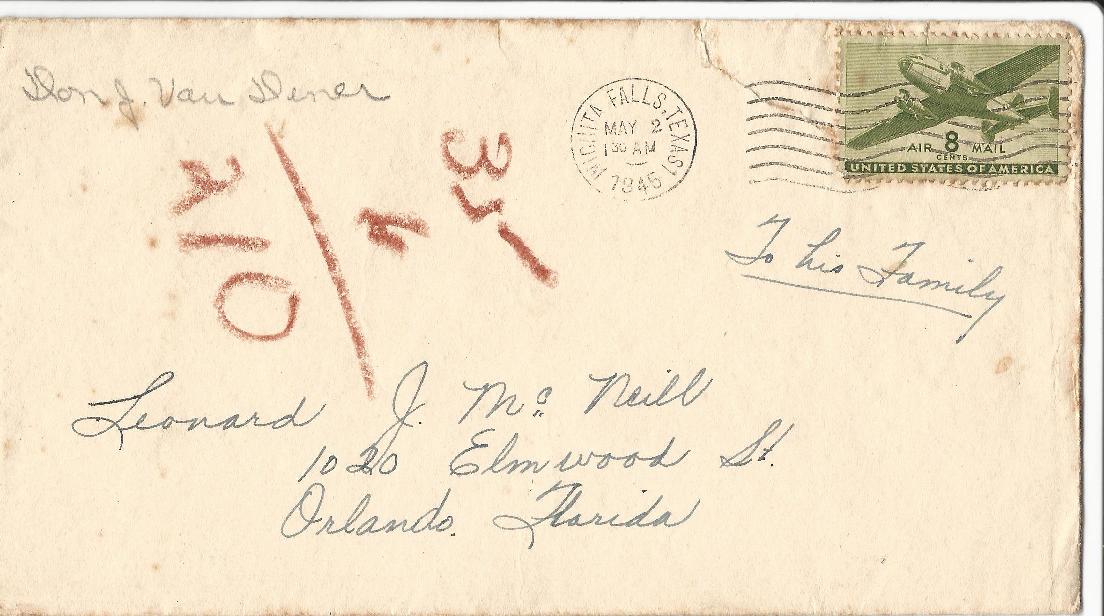 Don J. Van Dener
WICHITA FALLS, TEXAS
MAY 2
1 30 AM
1945
AIR 8 MAIL
CENTS
UNITED STATES OF AMERICA
35
210
To his Family
Leonard J. Mc Neill
1020 Elmwood St.
Orlando, Florida